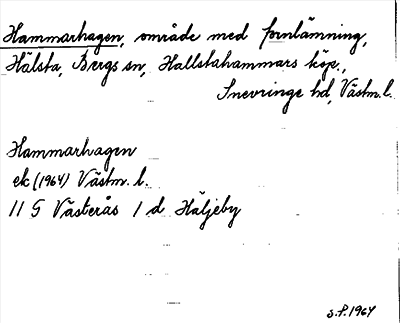 Hammarhagen, område med fornlämning,
Hälsta, Bergs sn, Hallstahammars köp.,
Snevringe hd, Västm.l.
Hammarhagen
ek (1964) Västm. l.
11 G Västerås 1 d Häljeby
S.P. 1964